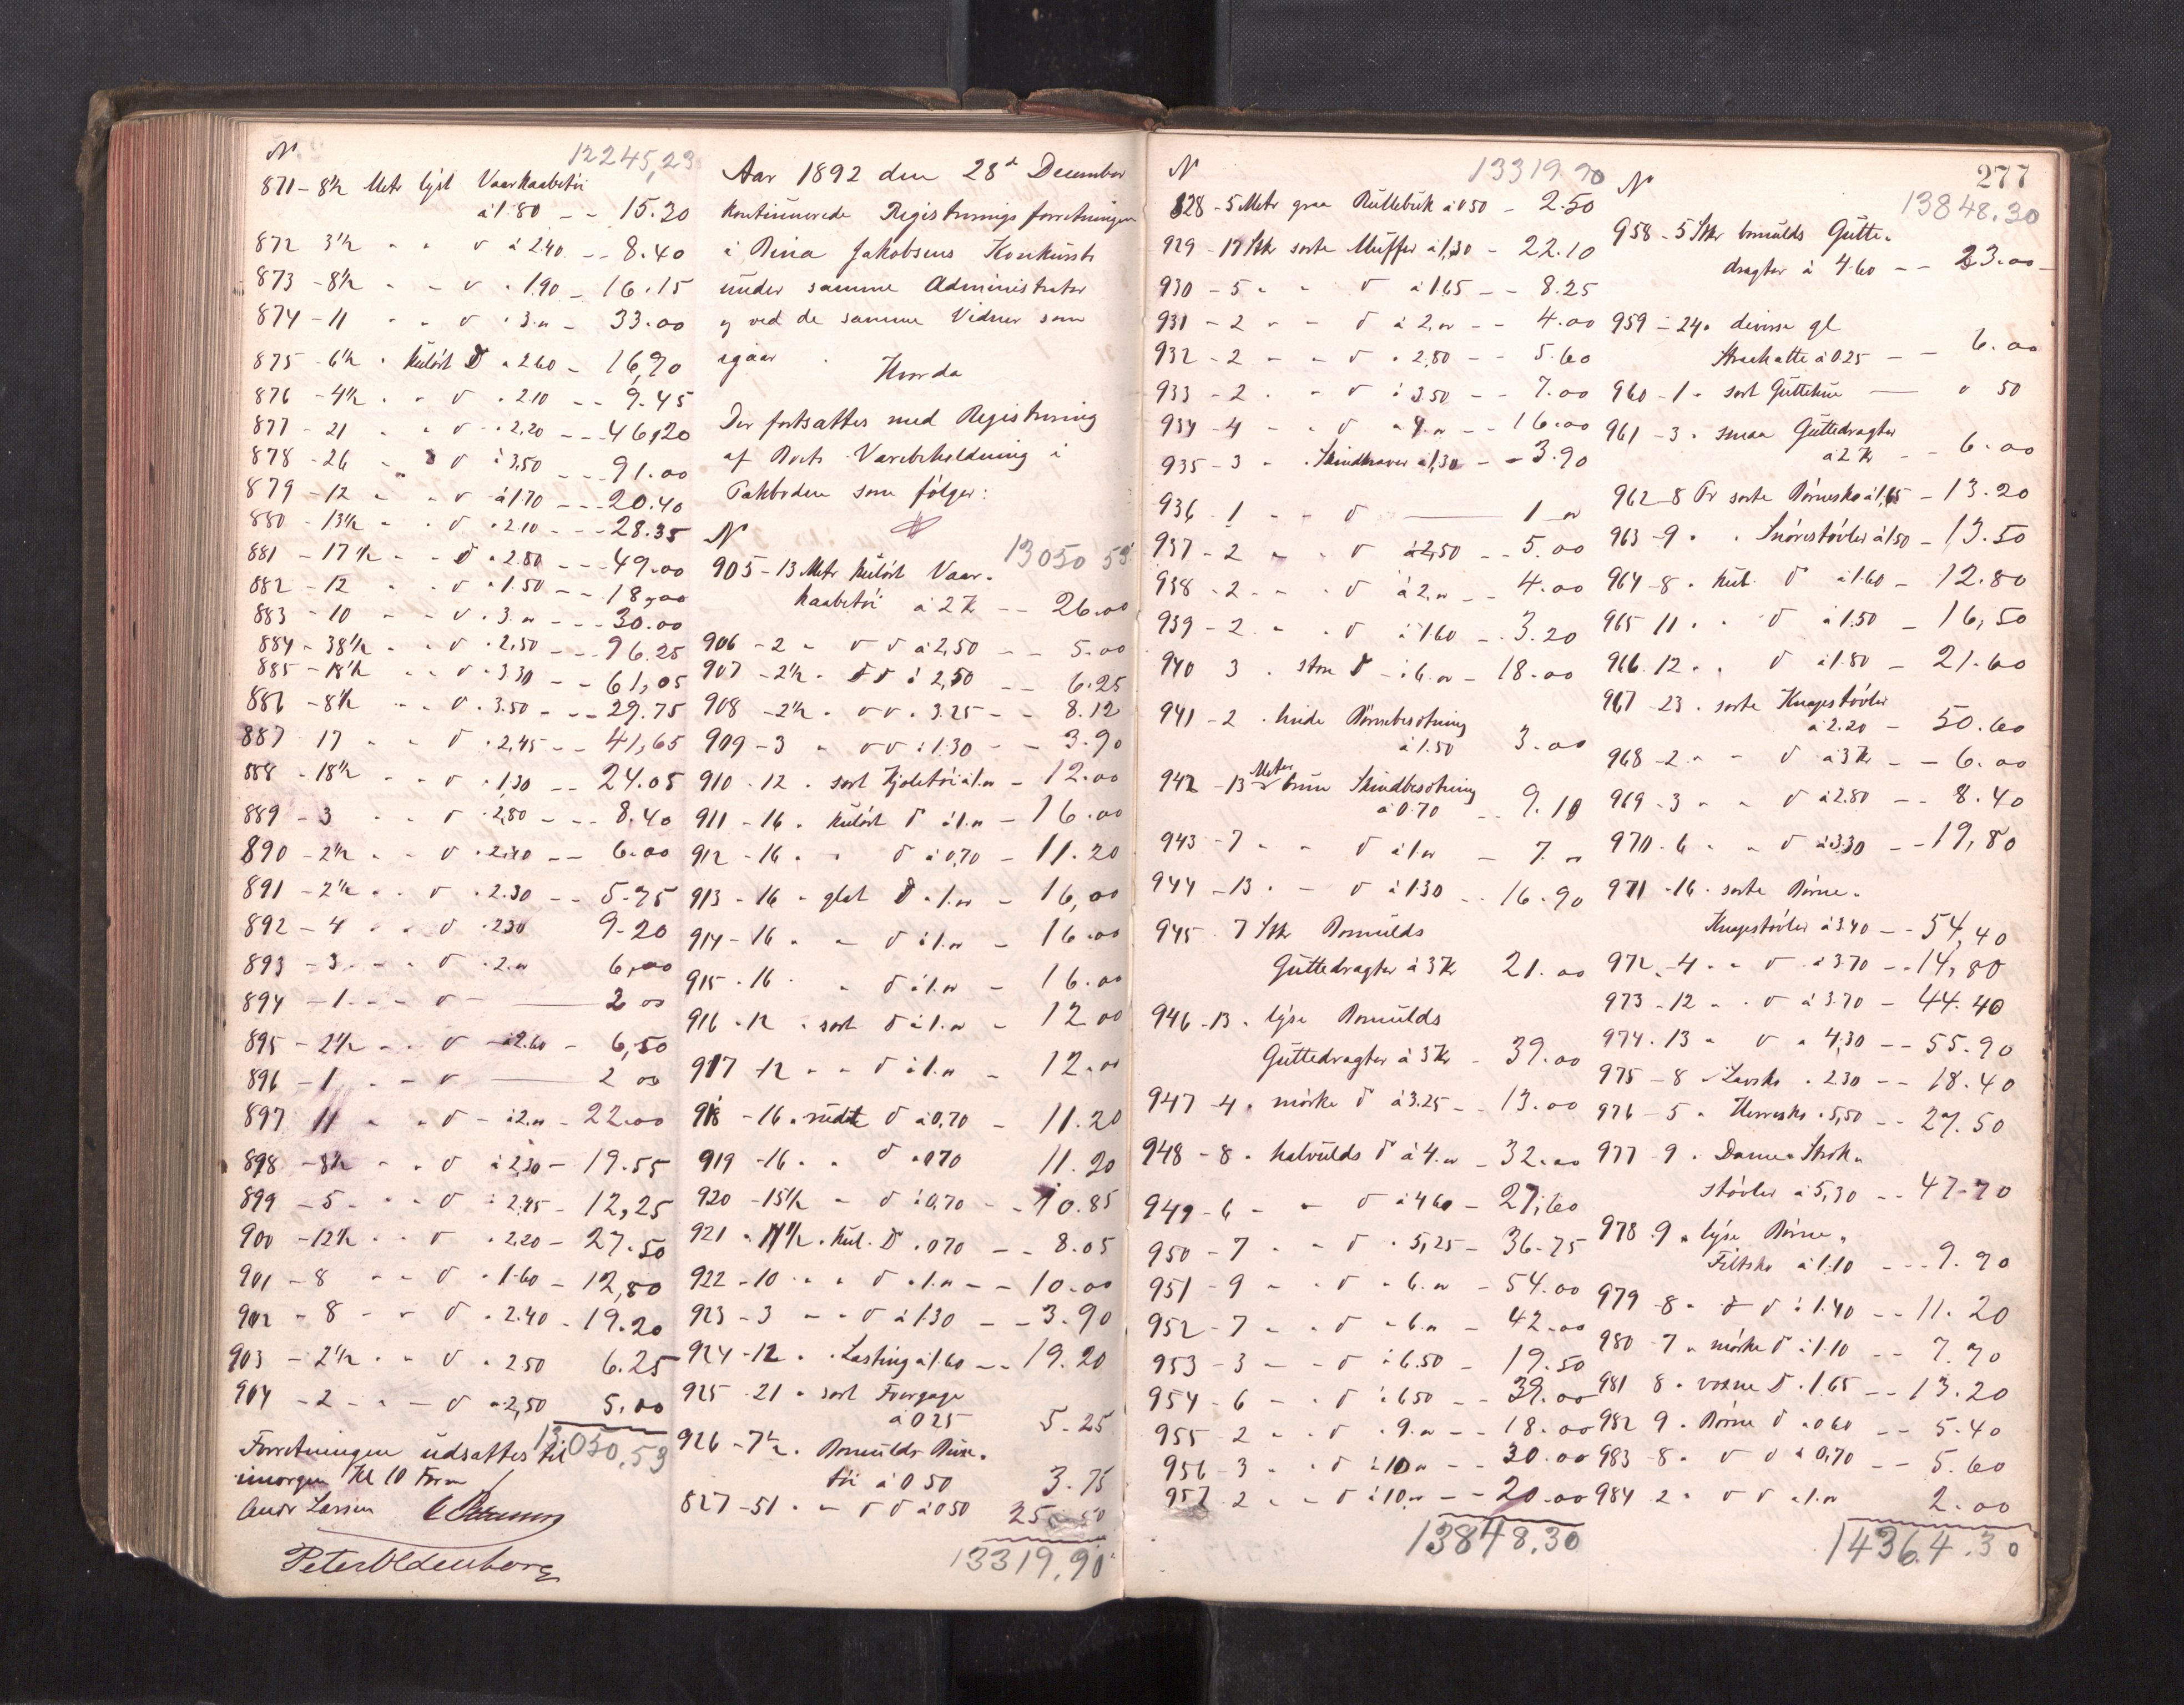 N
12245,23
871 - 8½ Metr lyst Vaarkaabetöi
à 1.80 - - 15.30
872 3½ " " d à 2.40 - - 8.40
873 - 8½ " - d " 1.90 - 16.15
874 - 11 " " d " 3." - 33.00
875 - 6½ " kulört D " 2.60 - 16,90
876 - 4½ " " d " 2.10 - - 9.45
877 - 21 " d " 2,20 - - 46,20
878 - 26 " d à 3,50 - - 91.00
879 - 12 " " d à 1.70 - - 20.40
880 - 13½ " " d " 2.10 - - 28.35
881 - 17½ " - d " 2.80 - - 49.00
882 - 12 " " d " 1.50 - - 18,00
883 - 10 " - d " 3." - - 30.00
884 - 38½ " " d " 2,50 - - 96.25
885 - 18½ " " d " 3.30 - - 61,05
886 - 8½ " " d " 3.50 - - 29.75
887 17 " " d " 2,45 - - 41,65
888 - 18½ " " d " 1,30 - - 24.05
889 - 3 " " d " 2,80 - - 8.40
890 - 2½ " " d " 2.40 - - 6.00
891 - 2½ " " d " 2.30 - - 5.75
892 - 4 " " d " 2.30 9.20
893 - 3 " " d " 2." 6,00
894 - 1 " - d - 2 00
895 - 2½ " " d - à 2.60 - 6,50
896 - 1 " - d 2 00
897 11 " " d - à 2." - 22.00
898 - 8½ " " d à 2,30 - 19.55
899 - 5 " " d à 2,45 - 12,25
900 - 12½ " " d " 2.20 - 27.50
901 - 8 " " d " 1.60 - 12,80
902 - 8 " " d " 2.40 - 19.20
903 - 2½ " " d " 2.50 6.25
904 - 2 " - d " 2,50 5.00
13050,53
Forretningen udsattes til
imorgen Kl 10 Form
Andr Larsen
Peter Oldenborg
Aar 1892 den 28d December
kontinuerede Registreringsforretningen
i Dina Jakobsens Konkursbo
under samme Administrator
og ved de samme Vidner som
igaar.
Hvorda
Der fortsattes med Registrering
af Boets Varebeholdning i
Pakboden som fölger:
N
13050 53
905 - 13 Metr kulört Vaar-
kaabetöi à 2 Kr - - 26.00
906 - 2 " d d à 2,50 - - 5.00
907 - 2½ " d d à 2,50 - - 6.25
908 - 2½ " d d " 3.25 - - 8.12
909 - 3 " d d à 1.30 - - 3.90
910 - 12 " sort Kjoletöi à 1." - 12.00
911 - 16 " kulört d à 1." - 16.00
912 - 16 " " d à 0,70 - 11.20
913 - 16 " glat d " 1." - 16,00
914 - 16 " - d à 1." - 16.00
915 - 16 " d à 1." - 16.00
916 - 12 " sort d à 1." - 12 00
917 - 12 " " d à 1." - 12.00
918 - 16 " rudet d à 0,70 - 11.20
919 - 16 " " d " 0.70 11.20
920 - 15½ " d à 0,70 - - 10.85
921 - 11½ " kul. D " 0.70 - - 8.05
922 - 10 " " d " 1." - - 10.00
923 - 3 " " d à 1.30 - - 3.90
924 - 12 " " Lasting à 1.60 - - 19.20
925 - 21 " sort Foergage
à 0 25 5.25
926 - 7½ " Bomulds Buxe-
töi à 0 50 3.75
827 - 51 " " d d à 0 50 25.50
13319,90
N
13319.90
828 - 5 Metr graa Rullebuk à 0 50 - 2.50
929 - 17 Stkr sorte Muffer à 1,30 - 22.10
930 - 5 " " d à 1.65 - - 8.25
931 - 2 " - d à 2," - - 4.00
932 - 2 " - d " 2,80 - - 5.60
933 - 2 " " d à 3.50 - - 7.00
934 - 4 " " d " 4." - - 16.00
935 - 3 " " Skindkraver à 1,30 - - 3.90
936 - 1 " - d 1 "
937 - 2 " " d à 2,50 - - 5.00
938 - 2 " " d à 2." - - 4.00
939 - 2 " " d à 1.60 - 3.20
940 3 " store d - à 6." - 18.00
941 - 2 " hvide Börnebesetning
à 1.50 3.00
942 - 13 Meter brun Skindbesetning
à 0.70 - - 9.10
943 - 7 " " d à 1." - 7."
944 - 13 " - d à 1.30 - - 16.90
945 7 Stkr Bomulds
Guttedragter à 3 Kr 21.00
946 - 13 " lyse Bomulds
Guttedragter à 3 Kr - 39.00
947 - 4 " mörke d à 3.25 - - 13.00
948 - 8 " halvulds d à 4." - 32.00
949 - 6 " " d à 4 60 - 27,60
950 - 7 " " d " 5,25 - 36.75
951 - 9 " " d " 6." - 54.00
952 - 7 " " d " 6." - 42.00
953 - 3 " " d à 6.50 - 19.50
954 - 6 " " d à 6 50 - - 39.00
955 2 " " d " 9." - - 18.00
956 - 3 " " d à 10." - - 30.00
957 2 " " d à 10." - - 20.00
13848.30
277
N
13848.30
958 - 5 Stkr bomulds Gutte-
dragter à 4.60 - - 23.00
959 - 24 " diverse gl
Straahatte à 0.25 - - 6.00
960 - 1 " sort Guttehue " 50
961 - 3 " smaa Guttedragter
à 2 Kr - - 6.00
962 - 8 Pr sorte Börnesko à 1,65 - 13.20
963 - 9 " " Snörestövler à 1.50 - 13.50
964 - 8 " kul. d à 1.60 - 12.80
965 11 " " d à 1.50 - 16,50
966 12 " " d à 1.80 - 21.60
967 - 23 " sorte Knapestövler
à 2.20 - 50.60
968 - 2 " " d à 3 Kr - - 6.00
969 - 3 " " d à 2.80 - - 8.40
970 - 6 " " d à 3.30 - - 19,80
971 - 16 " sorte Börne-
Knapestövler à 3.40 - - 54,40
972 - 4 " " d à 3.70 - - 14,80
973 - 12 " " d à 3.70 - 44.40
974 - 13 " d " 4,30 - - 55.90
975 - 8 " Lavsko " 2.30 - - 18.40
976 - 5 " Herresko " 5,50 - - 27.50
977 - 9 " Dame-Strik-
stövler à 5,30 - - 47.70
978 9 " lyse Börne-
Filtsko à 1.10 - - 9.90
979 - 8 " d d à 1.40 - - 11.20
980 - 7 " mörke d à 1.10 - - 7.70
981 8 " voxne d " 1.65 - - 13.20
982 9 " Börne d " 0 60 - - 5.40
983 - 8 " d d à 0,70 - - 5.60
984 2 " d d " 1." 2.00
14364.30